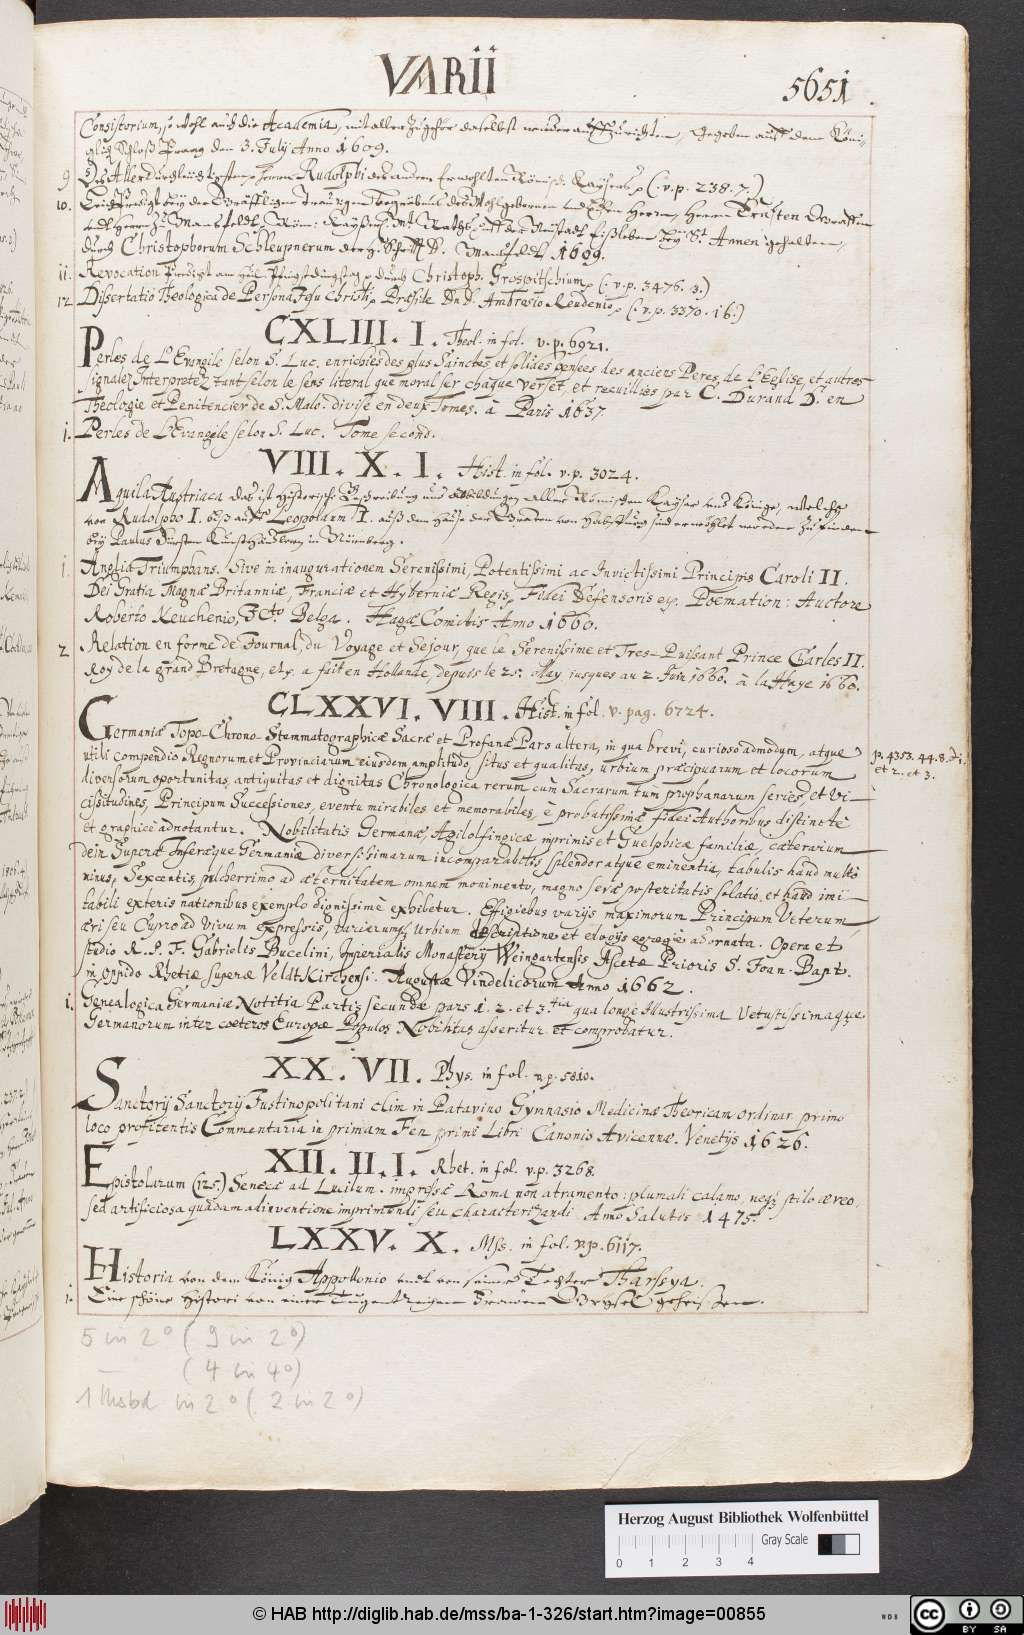 VARII
5651.
Consistorium, so wohl auch die Academia, mit aller Zugehör daselbst wiederauffzurichten, Gegeben auff dem König-
Schloß Praag den 3. Julij Anno 1609.
9 Des Allerdurchleuchtigsten, Herrn Rudolphi des andern Erwehlten Römisch. Kaysers, (: v. p. 238. 7.)
10. Leichpredigt bey der Gräfflichen Traurigen Begräbnuß des Wohlgebornen und Edlen Herrn, Herrn Graffen
und Herrn zu Mansfeldt, Röm: Kayserl. Mt. Raths, auff der Neustadt Eißleben bey St. Annen gehalten,
durch Christophorum Schleupnerum der H. Schrifft D. Mansfeldt. 1609.
11 Revocation Predigt am durch Christoph. Groswitschium, (: v. p. 3476. 3.)
12 Dissertatio Theologica de Persona Jesu Christi, Præside Dn. D. Ambrosio Reudenio, (: v. p. 3370. 16:)
CXLIII. I. Theol. in fol. v. p. 6921.
Perles de L'Evangile selon S. Luc. enrichies des plus Sainctes, et solides pensees des anciens Peres, de L'Eglise, et autres
signalez Interpretez tant selon le sens literal que moral ser chaque verset, et recuillies par C. Durand D. en
Theologie et Penitencier de S. Malo. divise en deux Tomes. à Paris 1637.
1. Perles de L'Evangile selon S. Luc. Tome second.
VIII. X. I. Hist. in fol. v. p. 3024.
Aquila Austriaca das ist Historische Beschreibung und Abbildungen aller Römischen Kayser und Könige, welche
von Rudolpho I. biß auff Leopoldum I. auß dem Hause der Graven von Habspurg sind erwöhlet worden zu finden
bey Paulus Fürsten Kunsthändlern in Nürnberg.
1. Anglia Triumphans. Sive in inaugurationem Serenissimi, Potentissimi ac Invictissimi Principis Caroli II.
Dei Gratia Magnæ Britanniæ, Franciæ et Hyberniæ Regis, Fidei Defensoris ep. Poemation: Auctore
Roberto Keuchenio, JCto Belga. Hagæ Comitis Anno 1660.
2 Relation en forme de Journal, du Voyage et Sejour, que le Serenissime et Tres-Puissant Prince Charles II.
Roy de la grand Bretagne, etz. a fait en Hollande, depuis le 25. May, jusques au 2. Juin 1660. à la Haye 1660.
CLXXVI. VIII. Hist. in fol. v. pag. 6724.
Germaniæ Topo-Chrono-Stemmatographicæ Sacræ et Profanæ Pars altera, in qua brevi, curioso admodum, atque
utili compendio Regnorum et Provinciarum eiusdem amplitudo, situs et qualitas, urbium præcipuarum et locorum
diversorum oportunitas, antiquitas et dignitas Chronologica rerum cùm Sacrarum tum prophanarum series, et vi-
cissitudines, Principum Successiones, eventu mirabiles et memorabiles, è probatissimæ fidei Authoribus distinctè
et graphicè adnotantur. Nobilitatis Germanæ, Agilolfingicæ inprimis et Guelphicæ familiæ, cæterarum
dein Superæ Inferæque Germaniæ diversissimarum incomparabilis splendor atque eminentia, tabulis haud multò
minus, Sexcentis, pulcherrimo ad æternitatem omnem monimento, magno seræ posteritatis solatio, et haud imi-
tabili exteris nationibus exemplo dignissimè exhibetur. Effigiebus varijs maximorum Principum Veterum,
æri seu Cupro ad vivum expressis, variarumq. Urbium descriptione et elogijs egregiè adornata. Opera et
studio R. P. F. Gabrielis Bucelini, Imperialis Monasterij Weingartensis Ascetæ Prioris S. Joan. Bapt.
in oppido Rhetiæ superæ Veldt Kirchensi. Augustæ Vindelicorum Anno 1662.
p. 4353. 44. 8.
et 2. et 3.
1. Genealogica Germaniæ Notitia Partis secundæ pars 1. 2. et 3.tia qua longè Illustrissima Vetustissimaque
Germanorum inter cœteros Europæ Populos Nobilitas asseritur et comprobatur.
XX. VII. Phys. in fol. v. p. 5810.
Sanctorij Sanctorij Justinopolitani olim in Patavino Gymnasio Medicinæ Theoricam ordinar. primo
loco profitentis Commentaria in primam Fen primi Libri Canonis Avicennæ. Venetijs 1626.
XII. II. I. Rhet. in fol. v. p. 3268.
Epistolarum (125.) Senecæ ad Lucilum. impressæ Roma non atramento: plumali calamo, neq; stilo æreo,
sed artificiosa quadam adinventione imprimendi seu characterizandi Anno Salutis 1475.
LXXV. X. Mss. in fol. v. p. 6117.
Historia von dem König Appollonio undt von seiner Tochter Tharsya.
1. Eine schöne Histori von einer Tugentreichen Frauwen Grysel geheissen.
5 in 2° ( 9 in 2°)
— ( 4 in 4°)
1 Msbd in 2° ( 2 in 2°)
Herzog August Bibliothek Wolfenbüttel
0 1 2 3 4
Gray Scale
© HAB http://diglib.hab.de/mss/ba-1-326/start.htm?image=00855
WDB
cc BY SA